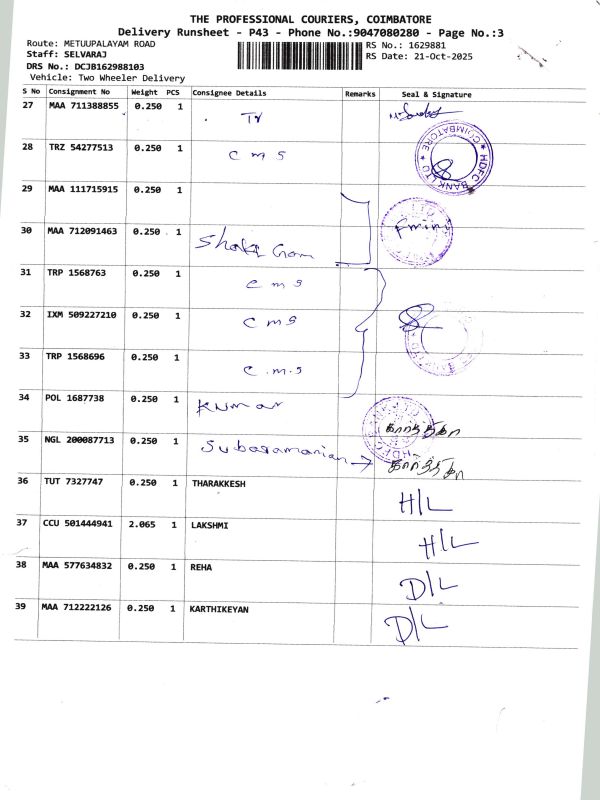 THE PROFESSIONAL COURIERS, COIMBATORE
Delivery Runsheet - P43 - Phone No.:9047080280 - Page No.:3
Route: METUUPALAYAM ROAD
RS No.: 1629881
Staff: SELVARAJ
RS Date: 21-Oct-2025
DRS No.: DCJB162988103
Vehicle: Two Wheeler Delivery
S No Consignment No Weight PCS Consignee Details Remarks Seal & Signature
27 MAA 711388855 0.250 1
28 TRZ 54277513 0.250 1 C M S
HDFC BANK LTD ★ COIMBATORE ★
29 MAA 111715915 0.250 1
30 MAA 712091463 0.250 1
31 TRP 1568763 0.250 1 C M S
32 IXM 509227210 0.250 1 C M S
33 TRP 1568696 0.250 1 C.M.S
34 POL 1687738 0.250 1 Kumar கார்த்திகா
35 NGL 200087713 0.250 1 Subaramanian → கார்த்திகா
36 TUT 7327747 0.250 1 THARAKKESH H/L
37 CCU 501444941 2.065 1 LAKSHMI H/L
38 MAA 577634832 0.250 1 REHA D/L
39 MAA 712222126 0.250 1 KARTHIKEYAN D/L